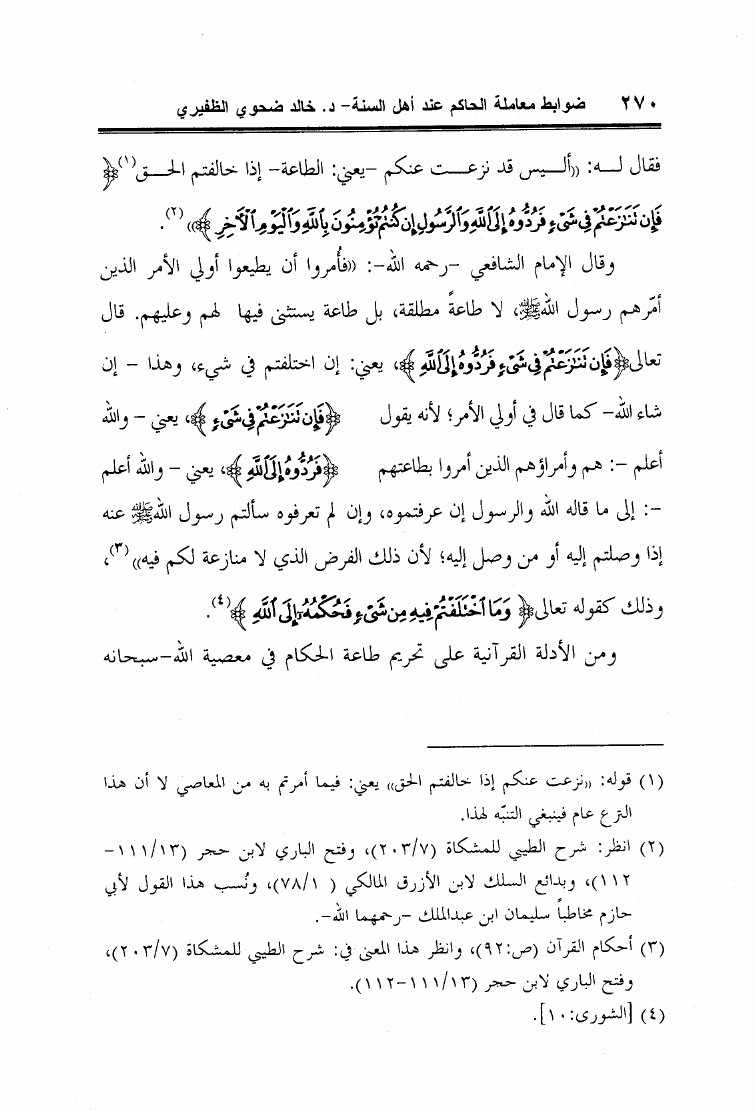 ٢٧٠ ضوابط معاملة الحاكم عند أهل السنة- د. خالد ضحوي الظفيري
فقال لـه: ((ألـيس قد نزعـت عنكم -يعني: الطاعة- إذا خالفتم الحـق(١) ﴿
فَإِن تَنَازَعْتُمْ فِي شَيْءٍ فَرُدُّوهُ إِلَى اللَّهِ وَالرَّسُولِ إِن كُنتُمْ تُؤْمِنُونَ بِاللَّهِ وَالْيَوْمِ الْآخِرِ ﴾))(٢).
وقال الإمام الشافعي -رحمه الله-: ((فأُمروا أن يطيعوا أولي الأمر الذين
أمّرهم رسول الله ﷺ، لا طاعةً مطلقة، بل طاعة يستثنى فيها لهم وعليهم. قال
تعالى ﴿فَإِن تَنَازَعْتُمْ فِي شَيْءٍ فَرُدُّوهُ إِلَى اللَّهِ ﴾، يعني: إن اختلفتم في شيء، وهذا - إن
شاء الله- كما قال في أولي الأمر؛ لأنه يقول ﴿فَإِن تَنَازَعْتُمْ فِي شَيْءٍ ﴾، يعني - والله
أعلم -: هم وأمراؤهم الذين أمروا بطاعتهم ﴿فَرُدُّوهُ إِلَى اللَّهِ ﴾، يعني - والله أعلم
-: إلى ما قاله الله والرسول إن عرفتموه، وإن لم تعرفوه سألتم رسول الله ﷺ عنه
إذا وصلتم إليه أو من وصل إليه؛ لأن ذلك الفرض الذي لا منازعة لكم فيه))(٣)،
وذلك كقوله تعالى ﴿ وَمَا اخْتَلَفْتُمْ فِيهِ مِن شَيْءٍ فَحُكْمُهُ إِلَى اللَّهِ ﴾(٤).
ومن الأدلة القرآنية على تحريم طاعة الحكام في معصية الله-سبحانه
(١) قوله: ((نزعت عنكم إذا خالفتم الحق)) يعني: فيما أمرتم به من المعاصي لا أن هذا
النزع عام فينبغي التنبّه لهذا.
(٢) انظر: شرح الطيبي للمشكاة (٢٠٣/٧)، وفتح الباري لابن حجر (١١١/١٣-
١١٢)، وبدائع السلك لابن الأزرق المالكي ( ٧٨/١)، ونُسب هذا القول لأبي
حازم مخاطباً سليمان ابن عبدالملك -رحمهما الله-.
(٣) أحكام القرآن (ص:٩٢)، وانظر هذا المعنى في: شرح الطيبي للمشكاة (٢٠٣/٧)،
وفتح الباري لابن حجر (١١١/١٣-١١٢).
(٤) [الشورى:١٠].